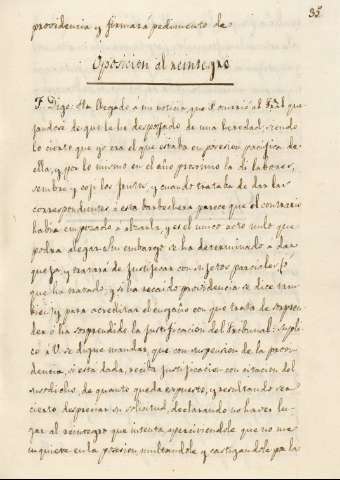 35
providencia, y firmará pedimento de
Oposicion al reintegro
F. Digo: Ha llegado á mi noticia que P. ocurrió al Tral que
jandose de que le he despojado de una heredad, siendo
lo cierto que yo era el que estaba en posesion pacifica de
ella, y por lo mismo en el año proximo la di labores,
sembre y cojí los frutos, y cuando trataba de dar las
correspondientes á esta barbechera parece que el contrario
habia empezado a alzarla, y es el unico acto nulo que
podra alegar: sin embargo se ha determinado a dar
queja, y tratará de justificar con sujetos parciales lo
que ha tratado, y si ha recaido providencia se dice tam
bien; y para acreditar el engaño con que trata de sorpren
der ó ha sorprendido la justificacion del Tribunal: Supli
co á V. se digne mandar, que con suspension de la provi
dencia, si está dada, reciba justificacion con citacion del
susodicho, de quanto queda expuesto, y resultando ser
cierto despreciar su solicitud, declarando no haver lu
gar al reintegro que intenta aperciviendole que no me
inquiete en la posesion, multandole y castigandole por la